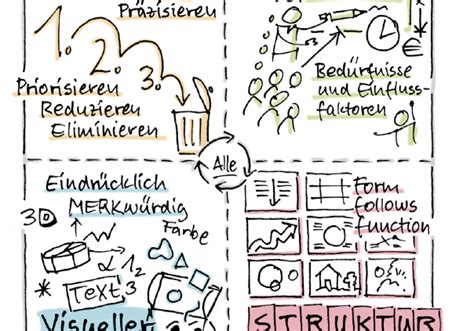 Präzisieren
1.
2.
3.
Priorisieren
Reduzieren
Eliminieren
Bedürfnisse
und Einfluss-
faktoren
Alle
Eindrücklich
MERKwürdig
3D
Farbe
1 2
3
Text
Visueller
Form
follows
function
STRUKTUR